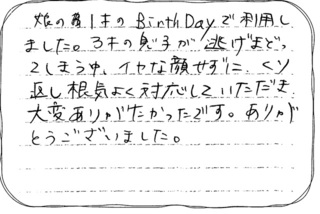 娘の第1才の BirthDayで利用し
ました。3才の息子が逃げまどっ
てしまう中、イヤな顔せずに、くり
返し根気よく対応していただき
大変ありがたかったです。ありが
とうございました。